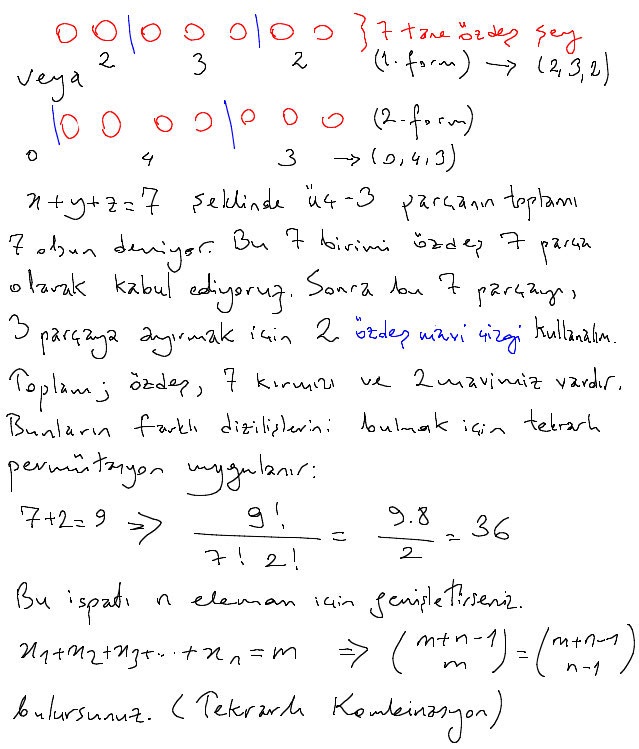 } 7 tane özdeş şey
2 3 2 (1. form) → (2,3,2)
veya
(2. form)
0 4 3 → (0,4,3)
x+y+z=7 şeklinde üç-3 parçanın toplamı
7 olsun deniyor. Bu 7 birimi özdeş 7 parça
olarak kabul ediyoruz. Sonra bu 7 parçayı,
3 parçaya ayırmak için 2 özdeş mavi çizgi kullanalım.
Toplam; özdeş, 7 kırmızı ve 2 mavimiz vardır.
Bunların farklı dizilişlerini bulmak için tekrarlı
permütasyon uygulanır:
7+2=9 ⇒ 9!/(7! 2!) = 9.8/2 = 36
Bu ispatı n eleman için genişletirseniz.
x₁+x₂+x₃+...+xₙ=m ⇒ (m+n-1 m) = (m+n-1 n-1)
bulursunuz. (Tekrarlı Kombinasyon)